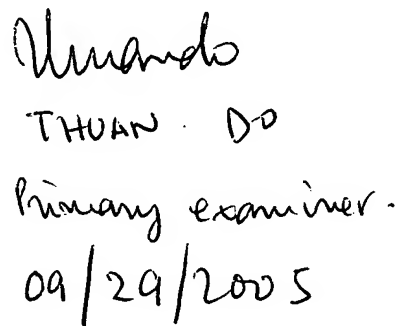 Thuando
THUAN. DO
Primary examiner.
09/29/2005